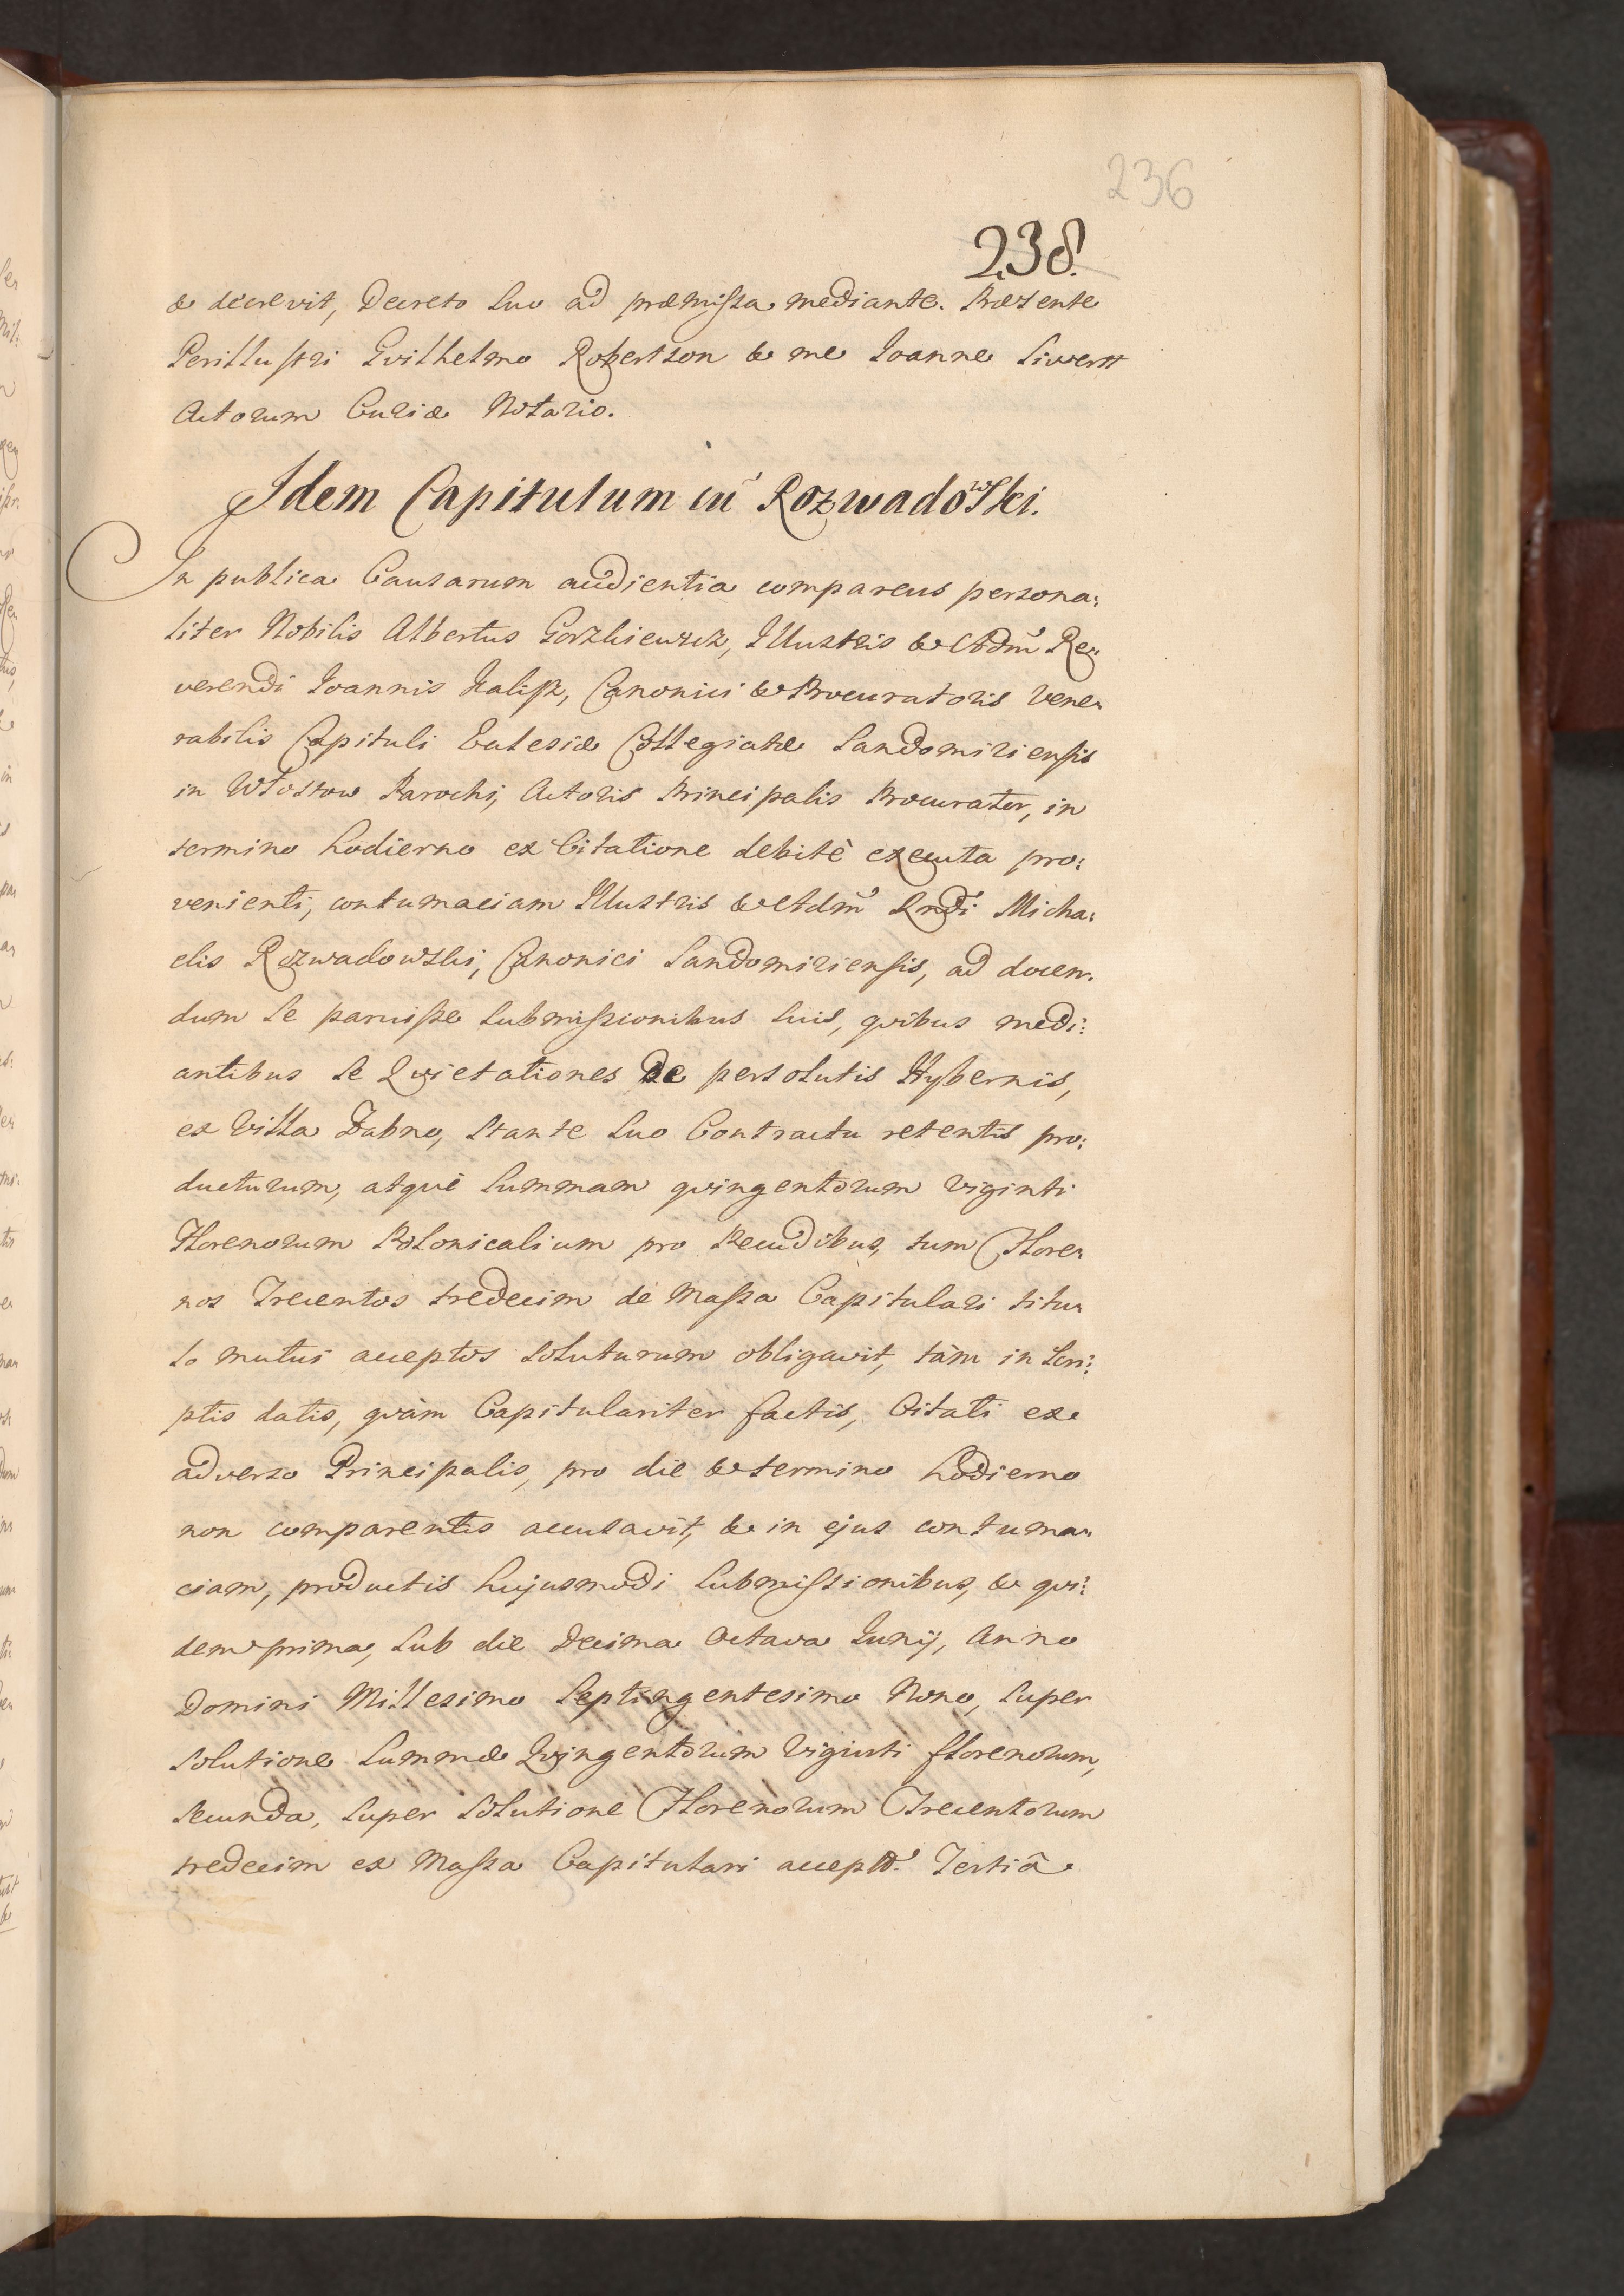 236
238.
& decrevit, Decreto suo ad præmissa mediante. Præsente
Perillustri Gvilhelmo Robertson & me Joanne Siwertt
Actorum Curiæ Notario.
Idem Capitulum cū Rozwadowski.
In publica Causarum audientia comparens persona:
liter Nobilis Albertus Gorzkiewicz, Illustris & Adm̃ Re:
verendi Joannis Kalisz, Canonici & Procuratoris Vene:
rabilis Capituli Eclesiæ Collegiatæ Sandomiriensis
in Włostow Parochi, Actoris Principalis Procurator, in
termino hodierno ex Citatione debitè executa pro:
venienti, contumaciam Illustris & Adm̃ Rndi Micha:
elis Rozwadowski, Canonici Sandomiriensis, ad docen:
dum se paruisse submissionibus suis, qvibus medi:
antibus se Qvietationes de persolutis Hybernis,
ex Villa Dabno, stante suo Contractu retentis pro:
ducturum, atqve summam qvingentorum viginti
Florenorum Polonicalium pro Pecudibus, tum Flore:
nos Trecentos tredecim de Massa Capitulari titu:
lo mutui acceptos soluturum obligavit, tàm in scri:
ptis datis, qvàm Capitulariter factis, Citati ex
adverso Principalis, pro die & termino hodierno
non comparentis accusavit, & in ejus contuma:
ciam, productis hujusmodi submissionibus, & qvi:
dem prima, sub die Decima Octava Junij, Anno
Domini Millesimo Septingentesimo Nono, super
solutione summæ Qvingentorum Viginti florenorum,
secunda, super solutione Florenorum Trecentorum
tredecim ex Massa Capitulari accept̃. Tertiâ